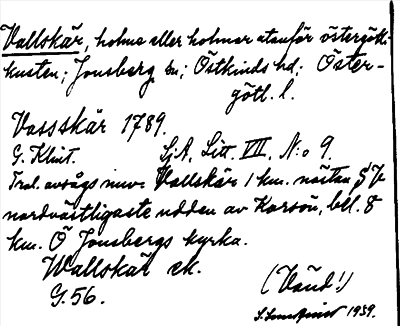 Vallskär, holme eller holmar utanför östergötl.
kusten; Jonsberg sn; Östkinds hd; Öster-
götl. l.
Vassskär 1789.
G. Klint. SjA, Litt. VII, N:o 9.
Trol. avsågs innre Vallskär 1 km. nästan SV
nordvästligaste udden av Karsön, bell. 8
km. Ö Jonsbergs kyrka.
Wallskär ek.
G. 56.
(Vänd!)
1939.